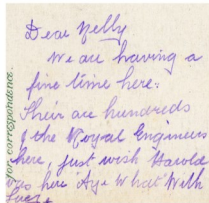 for correspondence.
Dear Nelly
We are having a
fine time here.
Their are hundreds
of the Royal Engineers
here, just wish Harold
was here Aye what. With
Love